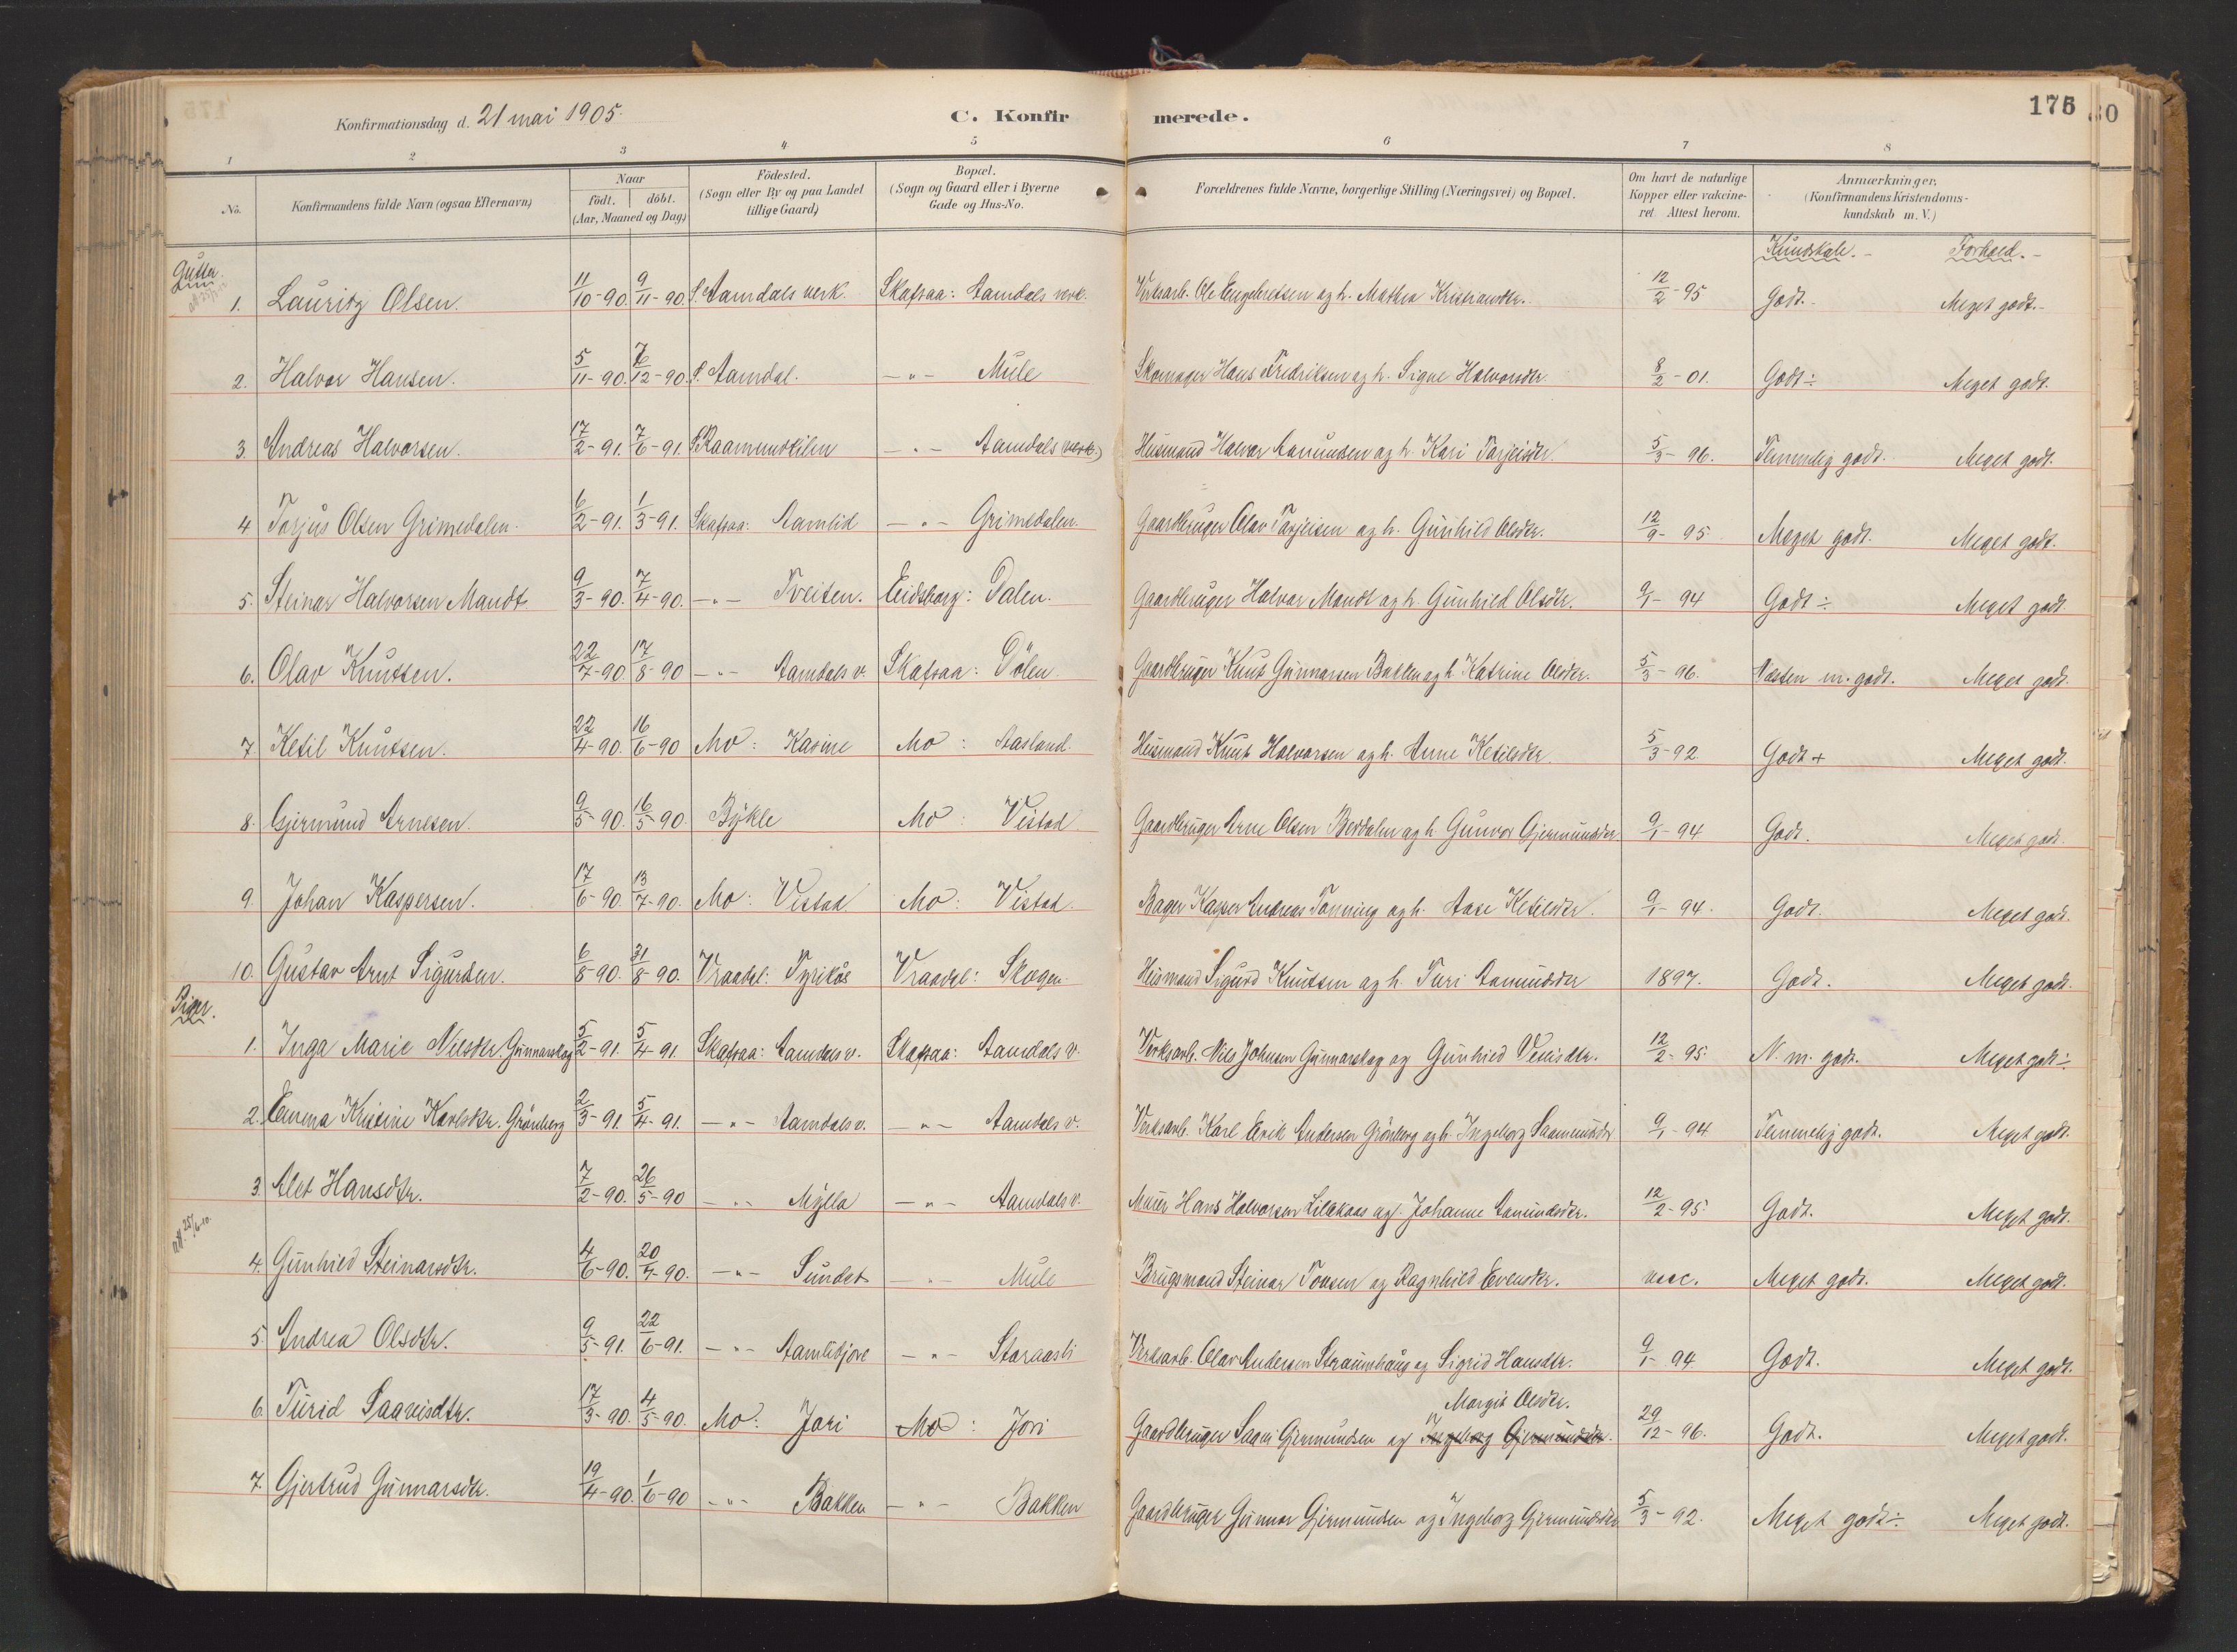 Konfirmationsdag d. 21 mai 1905.
C. Konfirmerede.
175
30
1 2 3 4 5 6 7 8
No.
Konfirmandens fulde Navn (ogsaa Efternavn)
Naar
födt. döbt.
(Aar, Maaned og Dag)
Födested.
(Sogn eller By og paa Landet
tillige Gaard)
Bopæl.
(Sogn og Gaard eller i Byerne
Gade og Hus-No.
Forældrenes fulde Navne, borgerlige Stilling (Næringsvei) og Bopæl.
Om havt de naturlige
Kopper eller vakcine-
ret. Attest herom.
Anmærkninger.
(Konfirmandens Kristendoms-
kundskab m. V.)
Kundskab. - Forhold. -
Gutter.
1. Lauritz Olsen. 11/10-90. 9/11-90. S. Aamdals verk. Skafsaa: Aamdals verk. Verksarb. Ole Engebretsen og h. Mathea Kristiansdtr. 12/2-95 Godt.- Meget godt.-
2. Halvor Hansen. 5/11-90. 7/12-90. S. Aamdal. -"- Mule Skomager Hans Fredriksen og h. Signe Halvorsdtr. 8/2-01. Godt÷ Meget godt.
3. Andreas Halvorsen. 17/2-91. 7/6-91. S. Raamundkilen -"- Aamdals (verk.) Husmand Halvor Aanundsen og h. Kari Tarjeisdtr. 5/3-96. Temmelig godt. Meget godt.
4 Torjus Olsen Grimedalen. 6/2-91. 1/3-91. Skafsaa: Aamlid -"- Grimedalen. Gaardbruger Olav Tarjeisen og h. Gunhild Olsdtr. 12/9-95. Meget godt. Meget godt.
5. Steinar Halvorsen Mandt 9/3-90. 7/4-90. -"- Tveiten. Eidsborg: Dalen. Gaardbruger Halvor Mandt og h. Gunhild Olsdtr. 9/1-94 Godt÷ Meget godt.
6. Olav Knutsen. 22/7-90. 17/8-90 -"- Aamdals v. Skafsaa: Dölen. Gaardbruger Knut Gunnarsen Bakken og h. Katrine Olsdtr. 5/3-96. Næsten m. godt. Meget godt.
7. Ketil Knutsen. 22/4-90. 16/6-90 Mo: Kasine Mo: Aasland. Husmand Knut Halvorsen og h. Anne Ketilsdtr. 5/3-92. Godt + Meget godt.
8. Gjermund Arnesen. 9/5-90. 16/5-90. Bykle Mo: Vistad Gaardbruger Arne Olsen Berdalen og h. Gunvor Gjermundsdtr. 9/1-94 Godt. Meget godt.
9. Johan Kaspersen. 17/6-90. 13/7-90. Mo: Vistad Mo: Vistad. Bager Kasper Andreas Tonning og h. Aase Ketilsdtr. 9/1-94. Godt. Meget godt.
10. Gustav Arnt Sigurdsen. 6/8-90. 31/8-90. Vraadal: Tyrikås Vraadal: Skogen. Husmand Sigurd Knutsen og h. Turi Aanundsdtr 1897. Godt. Meget godt.
Piger.
1. Inga Marie Nilsdtr. Gunnarskog 5/2-91. 5/4-91. Skafsaa: Aamdals v. Skafsaa: Aamdals v. Verksarb. Nils Johnsen Gunnarskog og Gunhild 12/2-95. N. m. godt. Meget godt÷
2. Emma Kristine Karlsdtr. Grönberg 2/3-91. 5/4-91. -"- Aamdals v. -"- Aamdals v. Verksarb. Karl Erik Andersen Grönberg og h. Ingeborg Saamundsdtr 9/1-94 Temmelig godt. Meget godt.
3. Alet Hansdtr. 7/2-90. 26/5-90 -"- Mylla -"- Aamdals v. Murer Hans Halvorsen Lilakaas og Johanne Aanundsdtr. 12/2-95. Godt. Meget godt.
att. 25/6-10.
4. Gunhild Steinarsdtr. 4/6-90. 20/7-90. -"- Sundet -"- Mule Brugsmand Steinar Tovsen og Ragnhild Evensdtr. vacc. Meget godt. Meget godt.
5. Andrea Olsdtr. 9/5-91. 22/6-91. -"- Aamlibjore -"- Storaasli Verksarb. Olav Andersen Straumhaug og Sigrid Hansdtr. 9/1-94 Godt. Meget godt.
Margit Olsdtr.
6. Turid Saaveisdtr. 17/3-90. 4/5-90. Mo: Jori Mo: Jori Gaardbruger Saavi Gjermundsen og Ingeborg Gjermundsdtr. 29/12-96. Godt. Meget godt.
7. Gjertrud Gunnarsdtr. 19/4-90. 1/6-90 -"- Bakken -"- Bakken Gaardbruger Gunnar Gjermundsen og Ingeborg Gjermundsdtr 5/3-92. Meget godt÷ Meget godt.